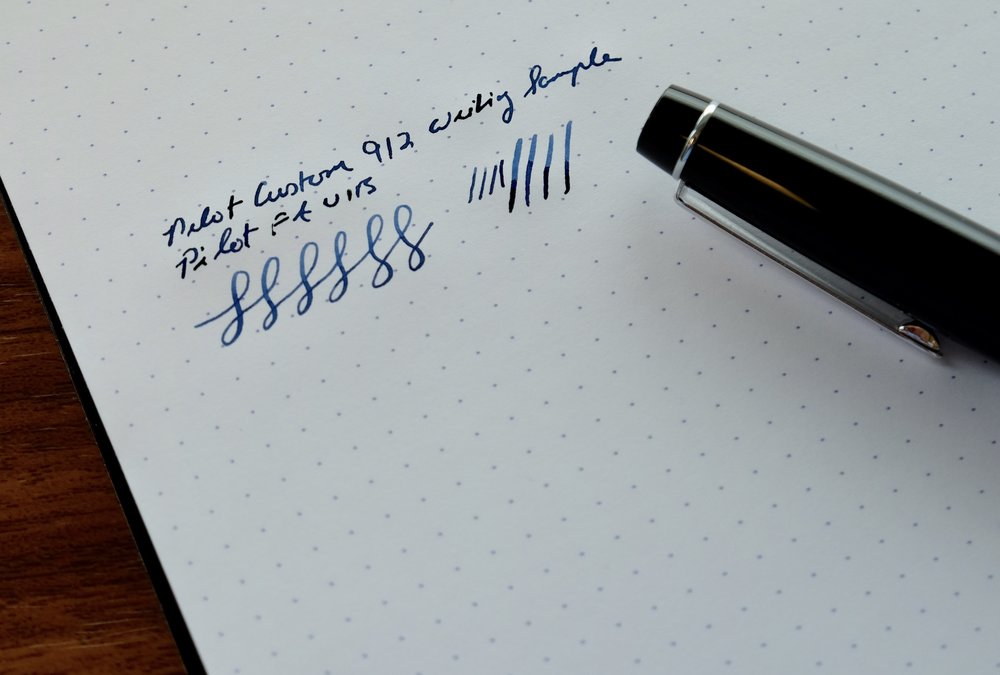 Pilot Custom 912 Writing Sample
Pilot FA nib